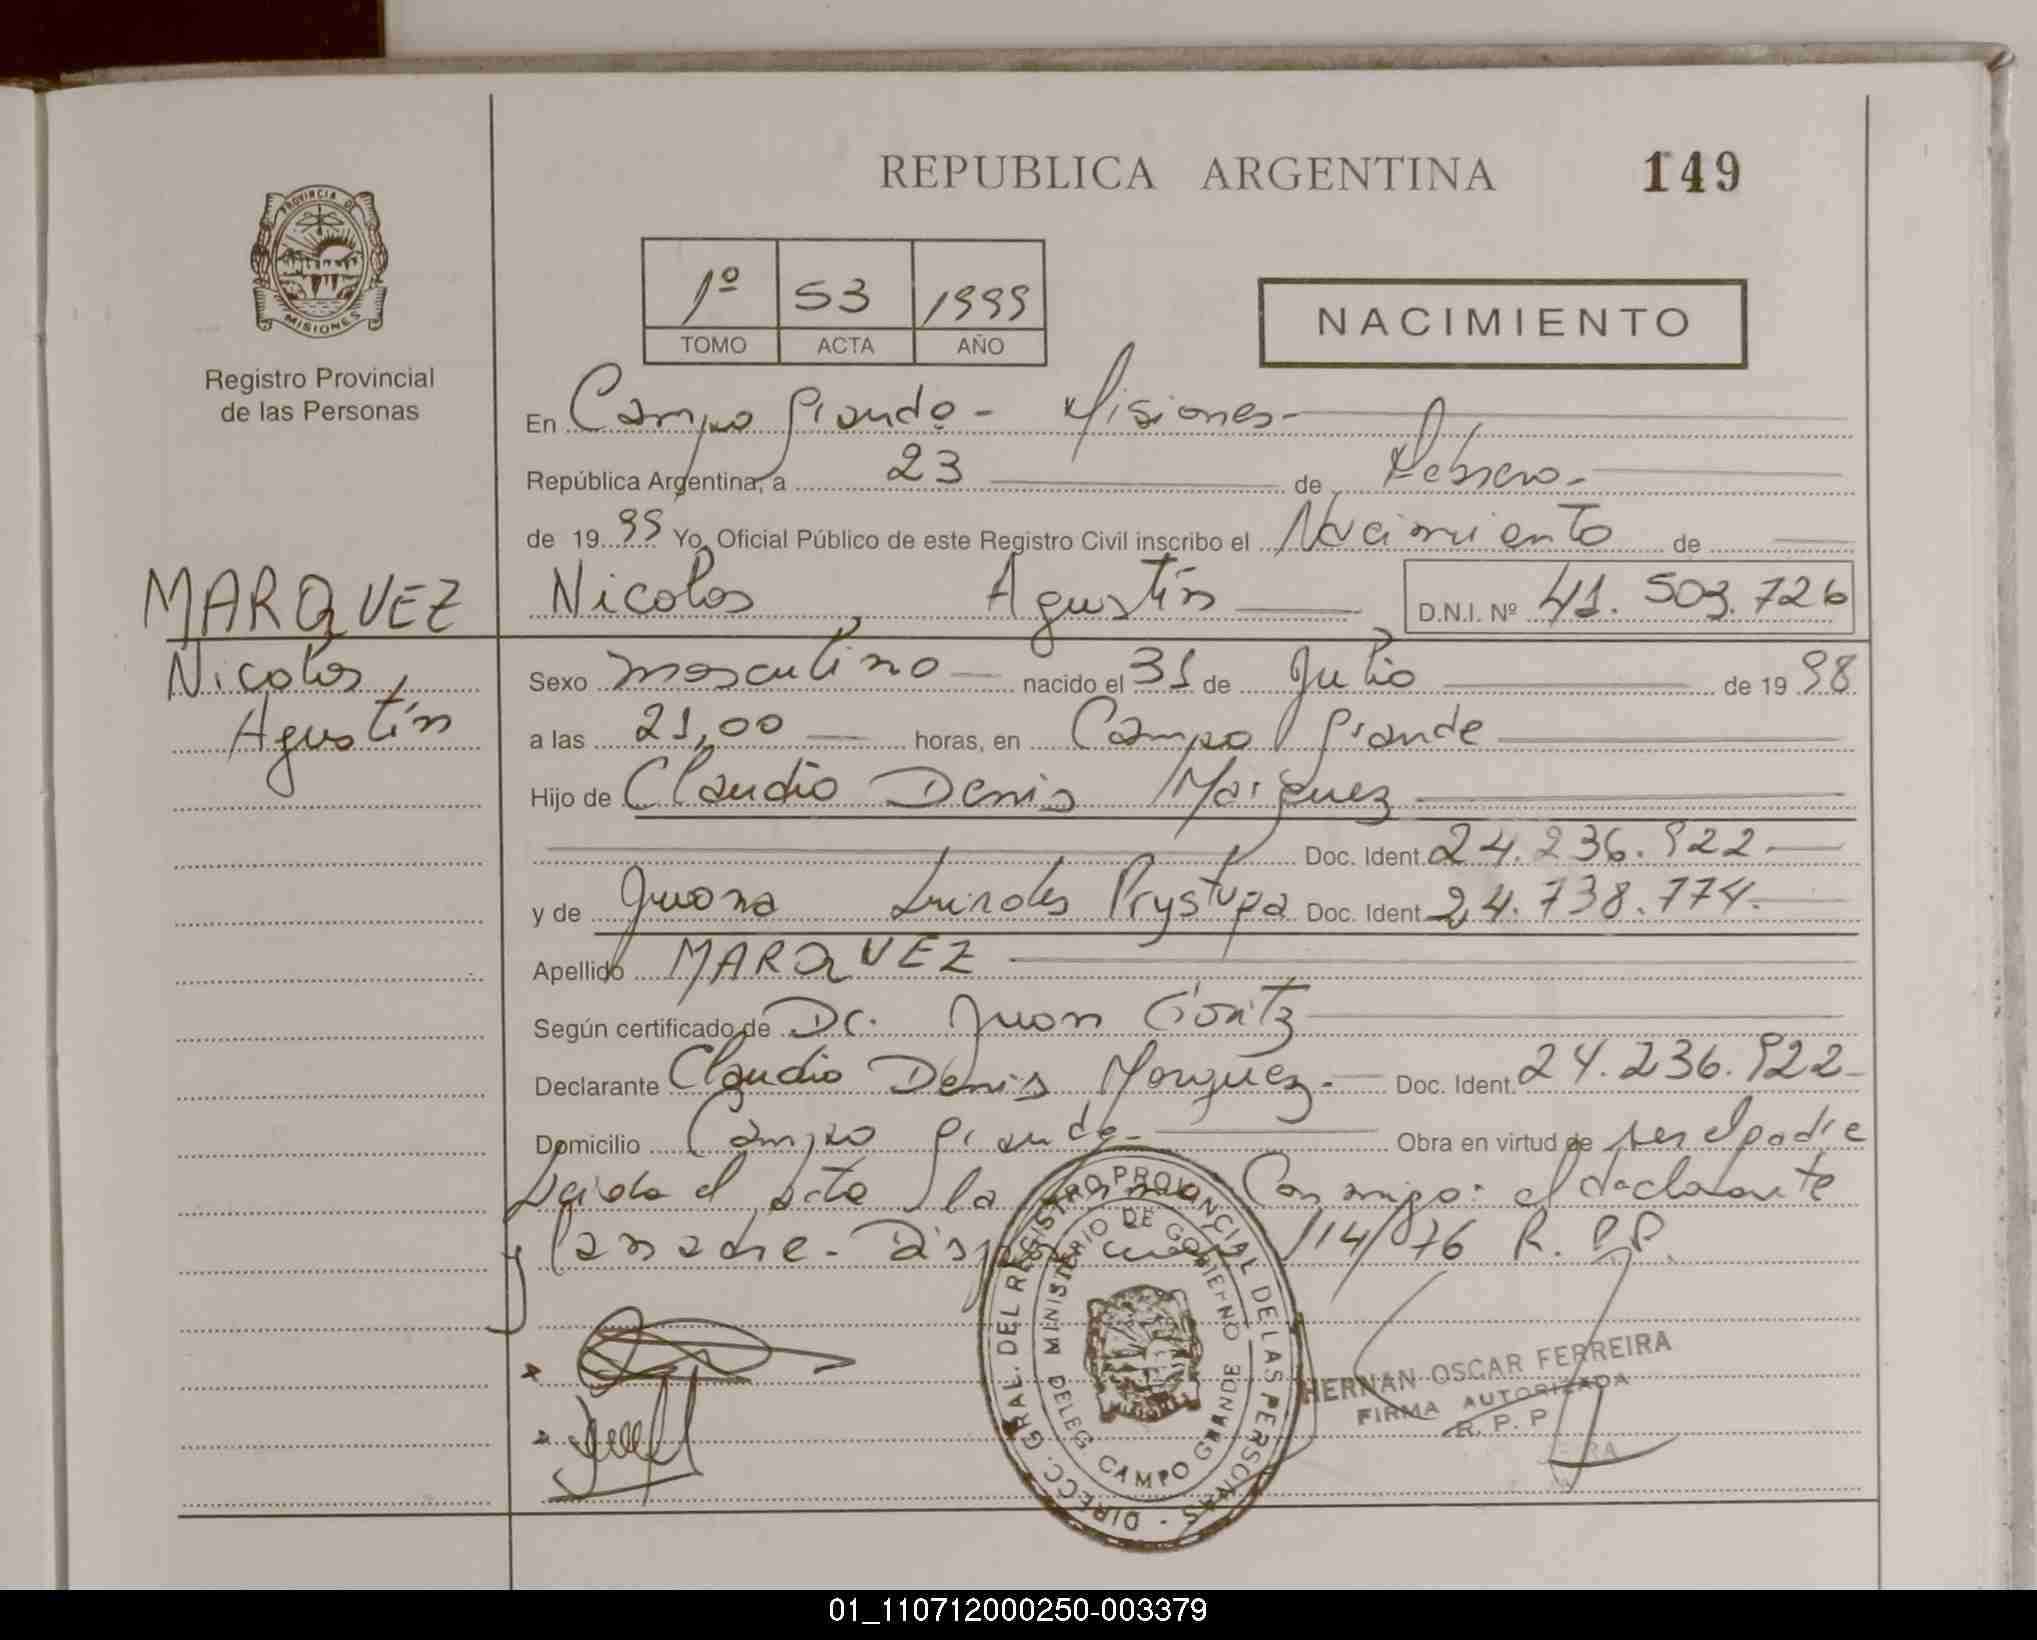 REPUBLICA ARGENTINA 149
PROVINCIA DE
MISIONES
Registro Provincial
de las Personas
1º 53 1999
TOMO ACTA AÑO
NACIMIENTO
En Campo Grande - Misiones -
República Argentina, a 23 de Febrero -
de 1999 Yo, Oficial Público de este Registro Civil inscribo el Nacimiento de
MARQUEZ
Nicolas, Agustín
Nicolas, Agustín D.N.I. Nº 41.503.726
Sexo masculino nacido el 31 de Julio de 1998
a las 21,00 horas, en Campo Grande
Hijo de Claudio Denis Marquez
Doc. Ident. 24.236.922.
y de Juana Prystupa Doc. Ident. 24.738.774.
Apellido MARQUEZ
Según certificado de Dr. Juan
Declarante Claudio Denis Marquez. Doc. Ident. 24.236.922
Domicilio Campo Grande - Obra en virtud de ser el padre
Leida el acta la Conmigo: el declarante
y la madre - 114/76 R.P.P.
DIRECC. GRAL. DEL REGISTRO PROVINCIAL DE LAS PERSONAS -
MINISTERIO DE GOBIERNO
DELEG. CAMPO GRANDE
HERNAN OSCAR FERREIRA
FIRMA AUTORIZADA
R. P. P.
01_110712000250-003379